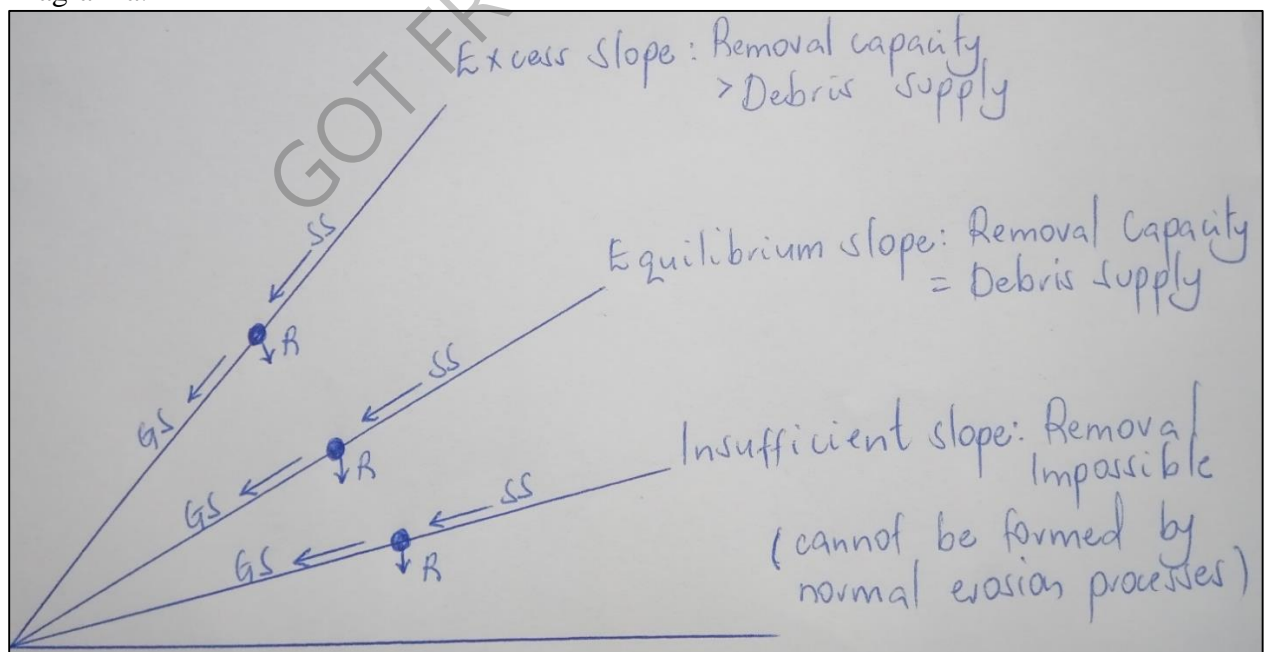 GOT FR
Excess slope: Removal capacity
> Debris supply
SS
R
GS
Equilibrium slope: Removal Capacity
= Debris supply
SS
R
GS
Insufficient slope: Removal
Impossible
(cannot be formed by
normal erosion processes)
SS
R
GS